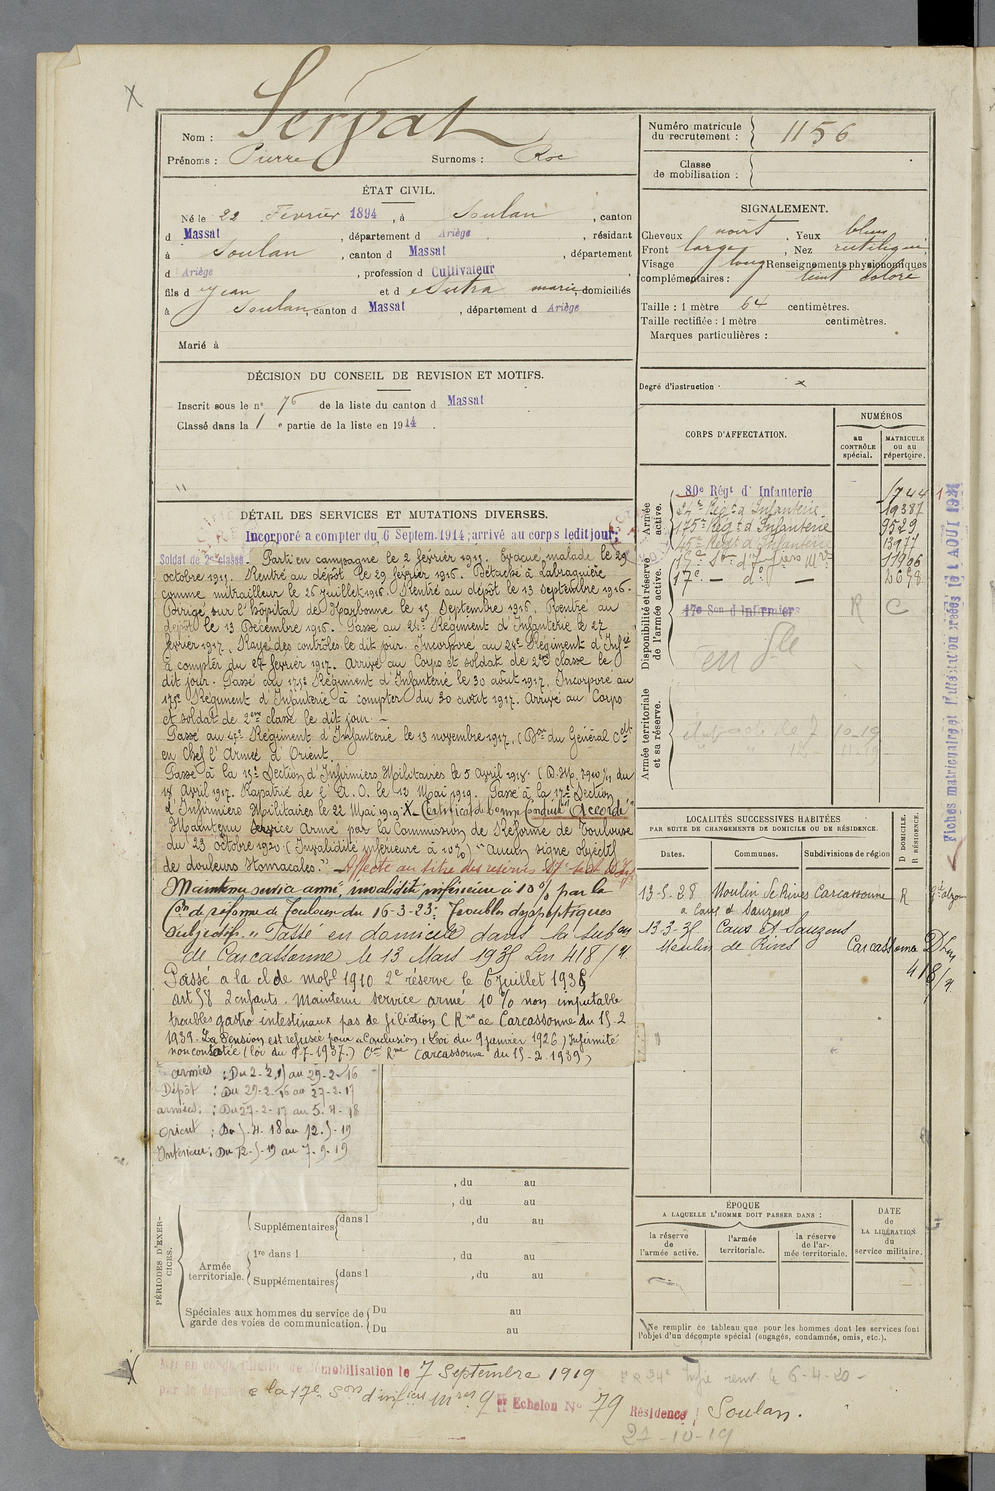 Nom : Serpat
Prénoms : Pierre Surnoms : Roc
Numéro matricule du recrutement : 1156
Classe de mobilisation :
ÉTAT CIVIL.
Né le 22 Février 1894, à Soulan, canton
d Massat, département d Ariège, résidant
à Soulan, canton d Massat, département
d Ariège, profession d Cultivateur
fils d Jean et d Sutra marie domiciliés
à Soulan, canton d Massat, département d Ariège
Marié à
SIGNALEMENT.
Cheveux noirs, Yeux bleus
Front large, Nez rectiligne
Visage long Renseignements physionomiques
complémentaires : teint coloré
Taille : 1 mètre 64 centimètres.
Taille rectifiée : 1 mètre centimètres.
Marques particulières :
DÉCISION DU CONSEIL DE REVISION ET MOTIFS.
Inscrit sous le n° 76 de la liste du canton d Massat
Classé dans la 1 e partie de la liste en 1914.
Degré d'instruction
CORPS D'AFFECTATION.
NUMÉROS
au CONTRÔLE spécial.
MATRICULE ou au répertoire.
Armée active.
80e Régt d' Infanterie 1744
24e Régt d'Infanterie 19387
175e Régt d'Infanterie 9529
Disponibilité et réserve de l'armée active.
17e Son d'Infirmiers R C
Armée territoriale et sa réserve.
DÉTAIL DES SERVICES ET MUTATIONS DIVERSES.
Incorporé a compter du 6 Septem. 1914; arrivé au corps ledit jour;
Soldat de 2e classe. Parti en campagne le 2 février 1915. Evacué malade le 29
octobre 1915. Rentré au dépôt le 29 février 1916. Détaché à Labruguière
comme mitrailleur le 26 juillet 1916. Rentré au dépôt le 13 septembre 1916.
Dirigé sur l'hôpital de Narbonne le 15 Septembre 1916. Rentré au
dépôt le 13 Décembre 1916. Passé au 24e Régiment d'Infanterie le 27
février 1917. Rayé des contrôles le dit jour. Incorporé au 24e Régiment d'Infie
à compter du 27 février 1917. Arrivé au Corps et soldat de 2ème classe le
dit jour. Passé au 175e Régiment d'Infanterie le 30 août 1917. Incorporé au
175e Régiment d'Infanterie à compter du 30 août 1917. Arrivé au Corps
et soldat de 2ème classe le dit jour.
Passé au 4e Régiment d'Infanterie le 13 novembre 1917. (Don du Général Ct
en Chef l'Armée d'Orient.
Passé à la 15e Section d'Infirmiers Militaires le 5 Avril 1918. (D.M. du
18 Avril 1917. Rapatrié de l'A. O. le 12 Mai 1919. Passé à la 17e Section
d'Infirmiers Militaires le 22 Mai 1919. X Certificat de bonne Conduite "Accordé"
Maintenu Service Armé par la Commission de Réforme de Toulouse
du 23 octobre 1920 (Invalidité inférieure à 10%) "Aucun signe objectif
de douleurs stomacales." Affecté au titre des réserves
Maintenu service armé, invalidité inférieure à 10% par la
Con de réforme de Toulouse du 16-3-23: Troubles dyspeptiques
subjectifs. Passé en domicile dans la Subon
de Carcassonne le 13 Mars 1931 Lin 418/9.
Passé a la cl de mobon 1910 2e réserve le 6 juillet 1936
art 58 2 enfants. Maintenu service armé 10% non imputable
troubles gastro intestinaux pas de filiation C Rme de Carcassonne du 15-2
1939. La Pension est refusée pour "Conclusion" (Loi du 9 janvier 1926) Infirmité
non constatée (loi du 9-7-1937.) Con Rme Carcassonne du 15-2-1939)
armées : Du 2-2-15 au 29-2-16
Dépôt : Du 29-2-16 au 27-2-17
armées : Du 27-2-17 au 5-4-18
Orient : Du 5-4-18 au 12-5-19
Intérieur : Du 12-5-19 au 7-9-19
LOCALITÉS SUCCESSIVES HABITÉES
PAR SUITE DE CHANGEMENTS DE DOMICILE OU DE RÉSIDENCE.
Dates. Communes. Subdivisions de région D DOMICILE. R RÉSIDENCE.
13-5-28 Moulin de Rives Carcassonne R
a Caux et Sauzens
13-3-31 Caux et Sauzens
Moulin de Rives Carcassonne D Lin
418/9.
Fiches matriculaire et d'affectation créées le 1 AOUT 1921
PÉRIODES D'EXERCICES.
, du au
, du au
Supplémentaires dans l , du au
Armée territoriale.
1re dans l , du au
Supplémentaires dans l , du au
Spéciales aux hommes du service de garde des voies de communication.
Du au
Du au
ÉPOQUE
A LAQUELLE L'HOMME DOIT PASSER DANS :
la réserve de l'armée active.
l'armée territoriale.
la réserve de l'armée territoriale.
DATE de LA LIBÉRATION du service militaire.
Ne remplir ce tableau que pour les hommes dont les services font
l'objet d'un décompte spécial (engagés, condamnés, omis, etc.).
Mis en congé illimité de démobilisation le 7 Septembre 1919
par le dépôt de la 17e Son d'infiers mres 9 er Echelon N° 79 Résidence Soulan.
6-4-20
27-10-19